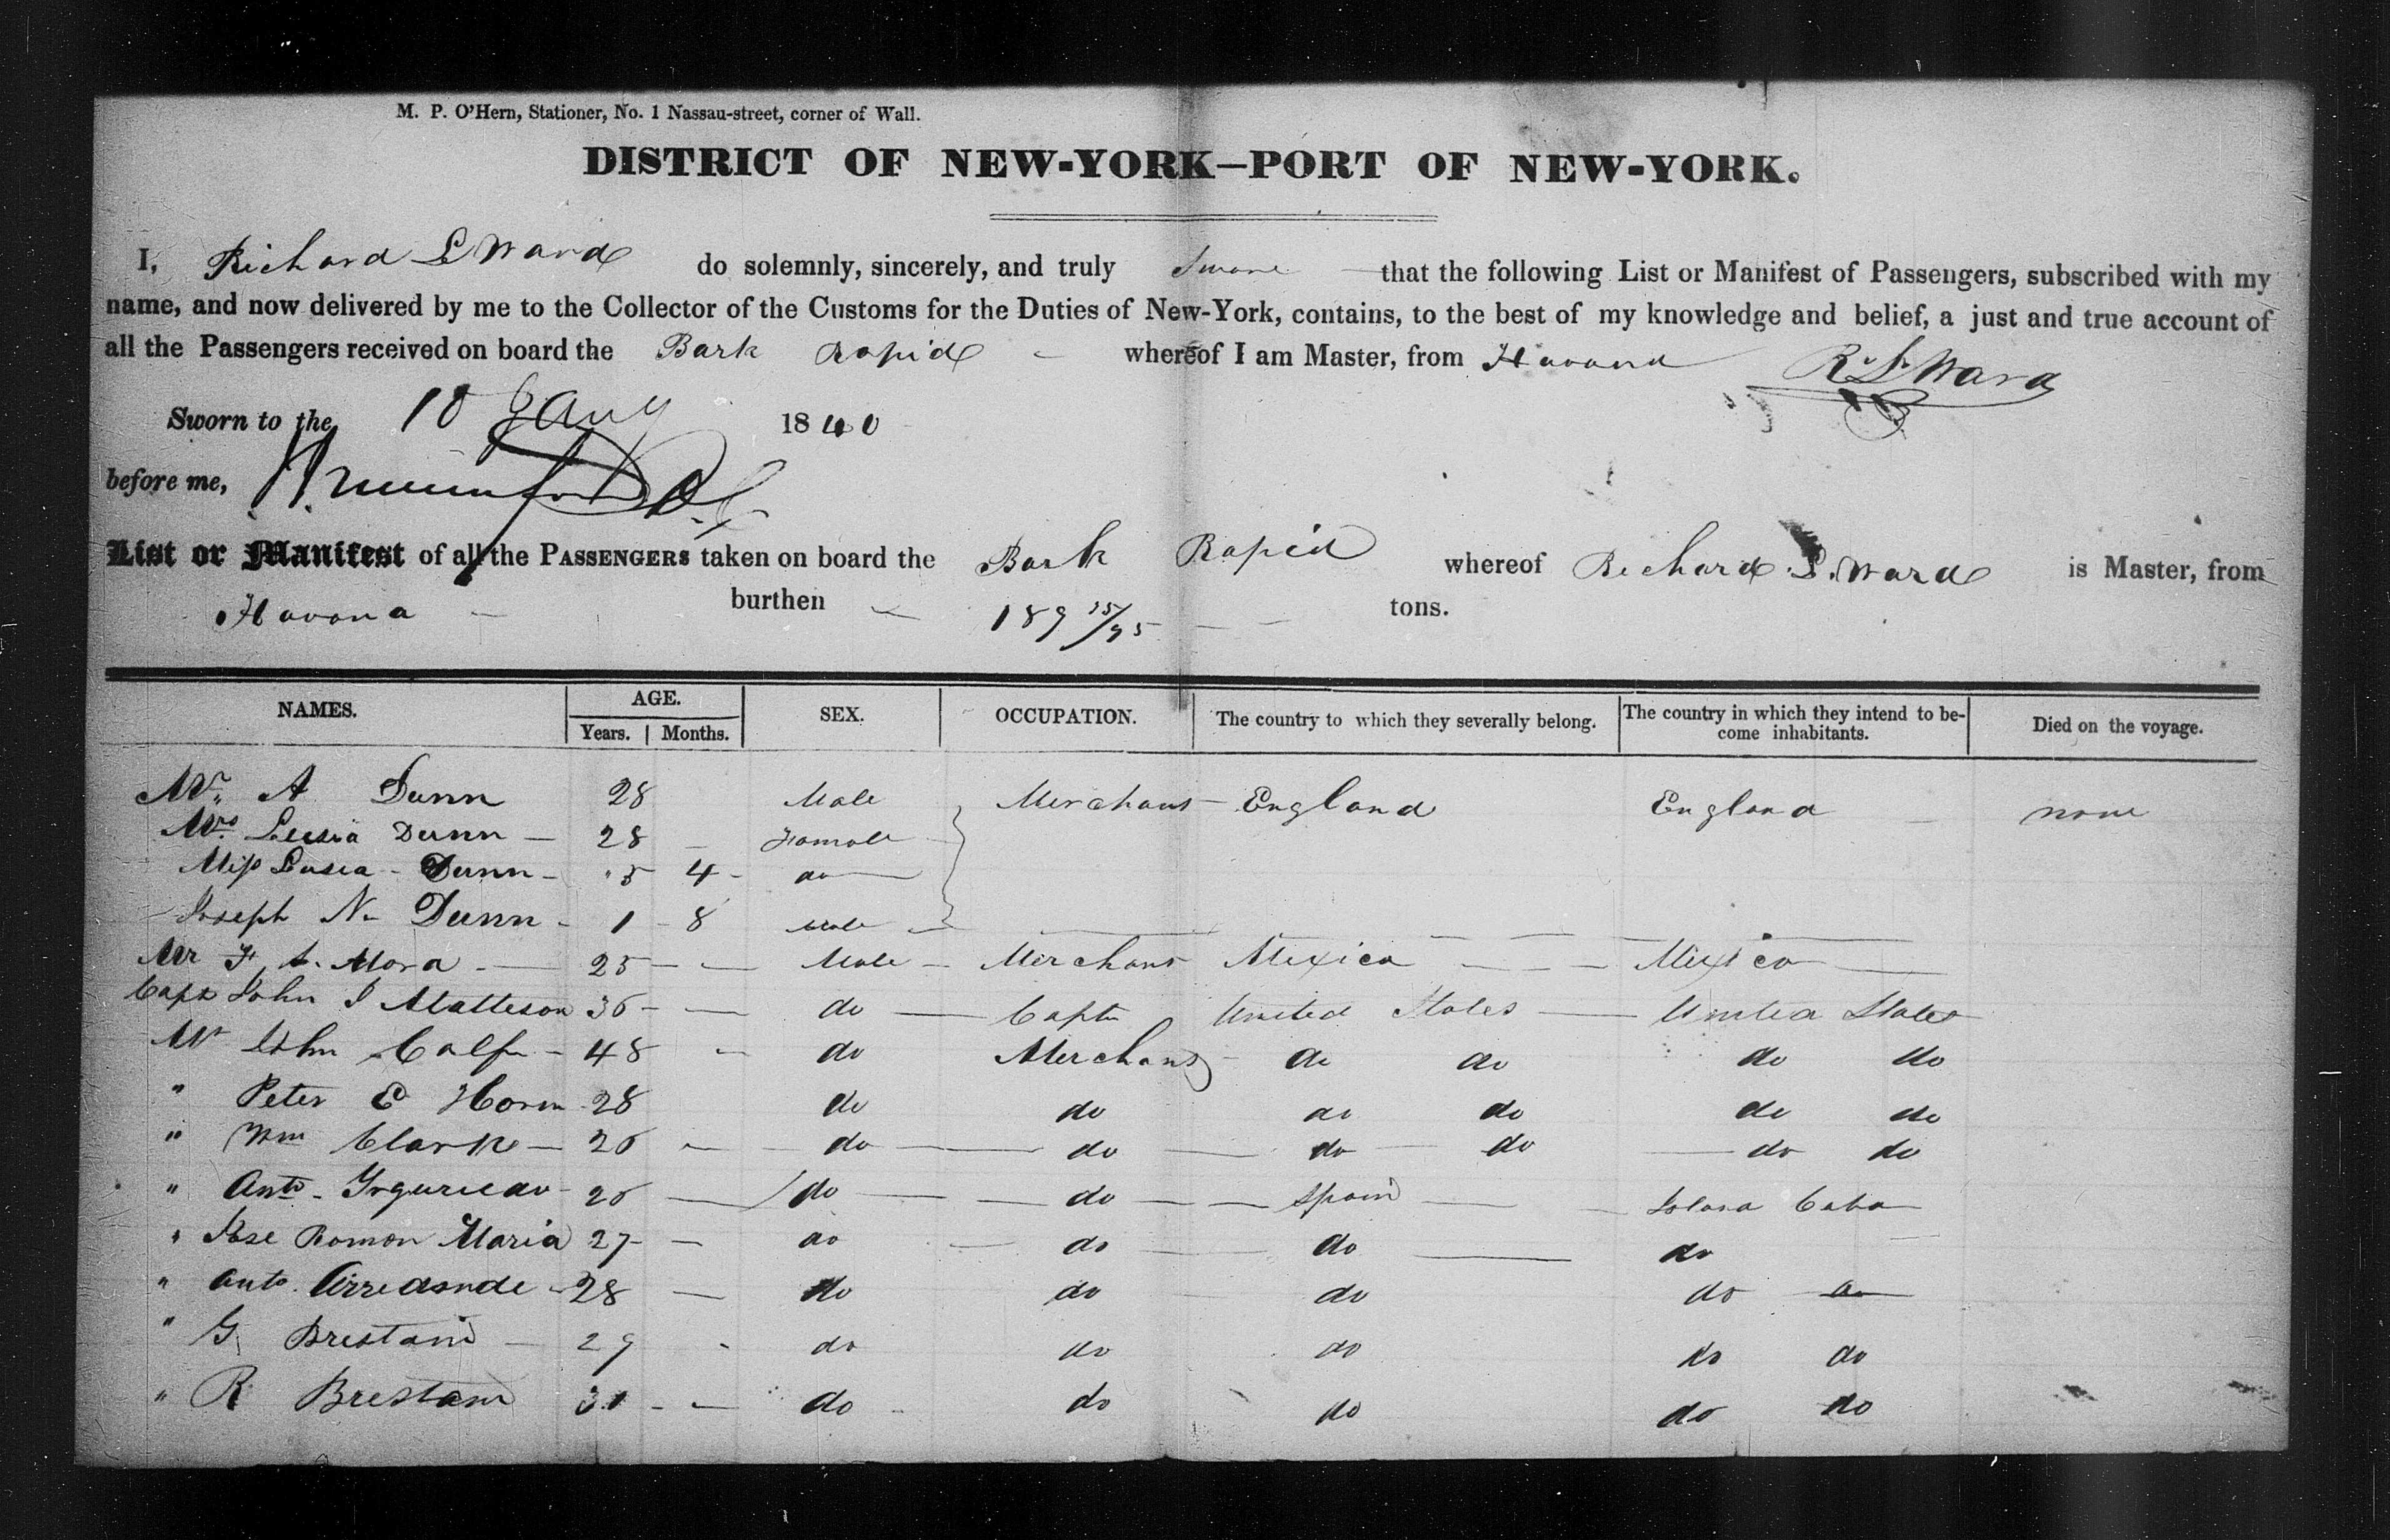 M. P. O'Hern, Stationer, No. 1 Nassau-street, corner of Wall.
DISTRICT OF NEW-YORK—PORT OF NEW-YORK.
I, Richard L Ward do solemnly, sincerely, and truly Swore that the following List or Manifest of Passengers, subscribed with my
name, and now delivered by me to the Collector of the Customs for the Duties of New-York, contains, to the best of my knowledge and belief, a just and true account of
all the Passengers received on board the Bark Rapid whereof I am Master, from Havana R L Ward
Sworn to the 10 Jany 1840
before me,
List or Manifest of all the PASSENGERS taken on board the Bark Rapid whereof Richard L. Ward is Master, from
Havana burthen 189 15/95 tons.
NAMES. AGE. SEX. OCCUPATION. The country to which they severally belong. The country in which they intend to be-
come inhabitants. Died on the voyage.
Years. Months.
Mr. A Dunn 28 Male Merchant England England none
Mrs Lusia Dunn 28 Female
Miss Lusia Dunn 5 4 do
Joseph N. Dunn 1 8 Male
Mr F. A. Mora 25 Male Merchant Mexico Mexico
Capt John J Matteson 36 do Captn United States United States
Mr John Calf 48 do Merchant do do do do
" Peter E Horn 28 do do do do do do
" Wm Clark 26 do do do do do do
" Anto. 26 do do Spain Island Cuba
" Jose Ramon Maria 27 do do do do
" Anto. Arredonde 28 do do do do do
" G. Brestani 29 do do do do do
" R Brestani 31 do do do do do